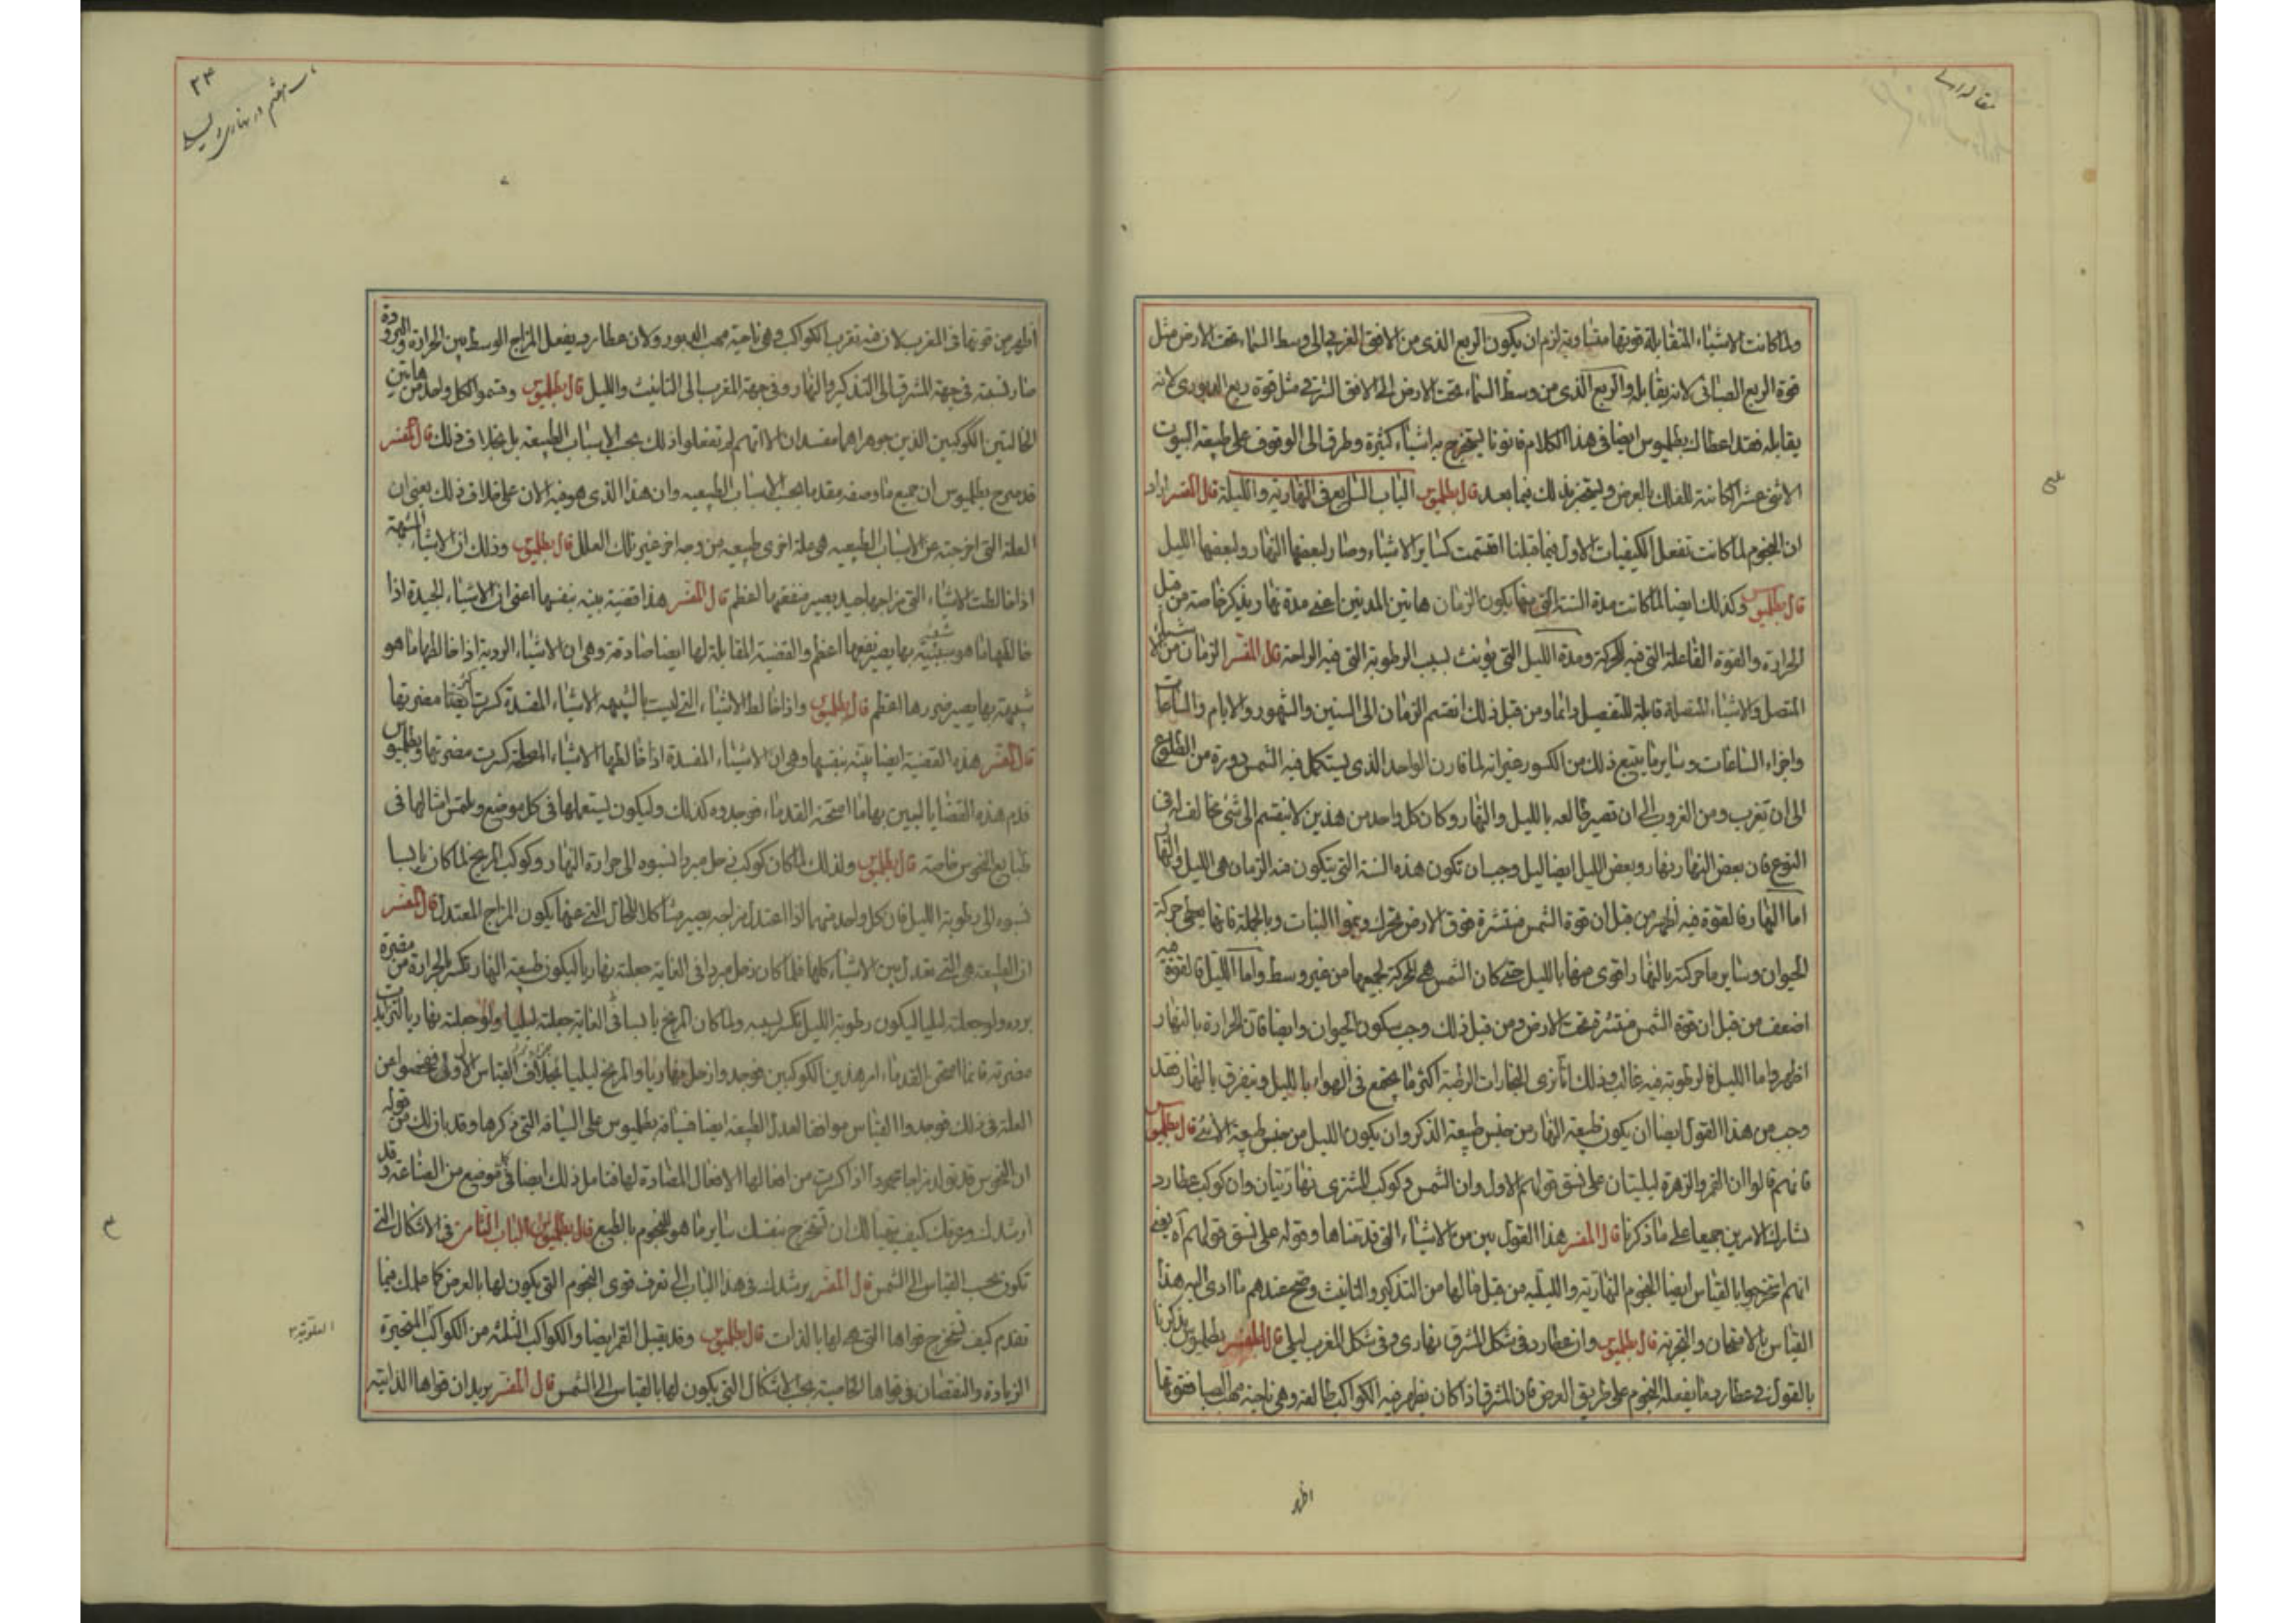 ولما كانت الاشياء المتقابلة قوتها متساوية لزم ان يكون الربع الذى من الافق الغربى الى وسط السماء تحت الارض مثل
قوة الربع الصبائى لانه يقابله والربع الذى من وسط السماء تحت الارض الى الافق الشرقى مثل قوة ربع الدبورى لانه
يقابله فقد اعطاك بطلميوس ايضا فى هذا الكلام قانونا ليستخرج به اشياء كثيرة وطرق الى الوقوف على طبيعة البيوت
الاثنى عشر الكائنة للفلك بالعرض وليستخبر بذلك فيما بعد قال بطلميوس الباب السابع فى النهارية والليلة قال المفسر اراد
ان النجوم لما كانت تفعل الكيفيات الاول فيما قبلنا اقتسمت كساير الاشياء وصار لبعضها النهار ولبعضها الليل
قال بطلميوس وكذلك ايضا لما كانت مدة السنة التى بها يكون الزمان هاتين المدتين اعنى مدة نهار ويذكر خاصة من قبل
الحرارة والقوة الفاعلة التى فيه للحركة ومدة الليل التى تؤنث لسبب الرطوبة التى فيه الراحة قال المفسر الزمان من الاشياء
المتصل والاشياء المتصلة قابلة للتفصيل دائما ومن قبل ذلك انقسم الزمان الى السنين والشهور والايام والساعات
واجزاء الساعات وساير ما يتبع ذلك من الكسور غير انه لما قارن الواحد الذى يستكمل فيه الشمس دورة من الطلوع
الى ان تغرب ومن الغروب الى ان تصير طالعه بالليل والنهار وكان كل واحد من هذين لا ينقسم الى شئ مخالف له فى
النوع فان بعض النهار نهار وبعض الليل ايضا ليل وجب ان تكون هذه السنة التى يتكون منه الزمان هى الليل والنهار
اما النهار فالقوة فيه اظهر من قبل ان قوة الشمس منتشرة فوق الارض تحرك وينموا النبات وبالجملة فانها يعطى حركة
الحيوان وساير ما حركته بالنهار اقوى منها بالليل حتى كان الشمس هى المحركة لجميعها من غير وسط واما الليل فالقوة فيه
اضعف من قبل ان قوة الشمس منتشرة تحت الارض ومن قبل ذلك وجب سكون الحيوان وايضا فان الحرارة بالنهار
اظهر واما الليل فالرطوبة فيه غالبة وذلك انا نرى البخارات الرطبة اكثر ما يجتمع فى الهواء بالليل ويتفرق بالنهار فقد
وجب من هذا القول ايضا ان يكون طبيعة النهار من جنس طبيعة الذكر وان يكون الليل من جنس طبيعة الانثى قال بطلميوس
فانهم قالوا ان القمر والزهرة ليليتان على نسق قولهم الاول وان الشمس وكوكب المشترى نهاريتان وان كوكب عطارد
تشارك الامرين جميعا على ما ذكرنا قال المفسر هذا القول بين من الاشياء التى قدمناها وقوله على نسق قولهم اه يعنى
انهم استخرجوا بالقياس ايضا النجوم النهارية والليلية من قبل مالها من التذكير والتانيث وصح عندهم ما ادى اليه هذا
القياس بالامتحان والتجربة قال بطلميوس وان عطارد فى شكل المشرق نهارى وفى شكل المغرب ليلى قال المفسر بطلميوس يذكرنا
بالقول فى عطارد ما يفعله النجوم على طريق العرض فان المشرق اذا كان يظهر فيه الكواكب طالعة وهى ناحية مهب الصبا فقوتها
اظهر
اظهر من قوتها فى المغرب لان فيه تغرب الكواكب وهى ناحية مهب الدبور ولان عطارد يفعل المزاج الوسط بين الحرارة والبرودة
صار نسبته فى جهة المشرق الى التذكير والنهار وفى جهة المغرب الى التانيث والليل قال بطلميوس وقسموا لكل واحد من هاتين
الحالتين الكوكبين الذين جوهراهما مفسدان الا انهم لم تفعلوا ذلك بحسب الاسباب الطبيعية بل بخلاف ذلك قال المفسر
قد صرح بطلميوس ان جميع ما وصفه مقدما بحسب الاسباب الطبيعيه وان هذا الذى هو فيه الان على خلاف ذلك يعنى ان
العلة التى اخرجته عن الاسباب الطبيعيه هى علة اخرى طبيعيه من وجه اخر غير تلك العلل قال بطلميوس وذلك ان الاشياء الشبيهة
اذا خالطت الاشياء التى مزاجها جيد يصير منفعتها اعظم قال المفسر هذا قضية بينه بنفسها اعنى ان الاشياء الجيدة اذا
خالطها ما هو شبيه بها يصير نفعها اعظم والقضية المقابلة لها ايضا صادقة وهى ان الاشياء الردية اذا خالطها ما هو
شبيهة بها يصير ضررها اعظم قال بطلميوس واذا خالط الاشياء التى ليست بالشبيهه الاشياء المفسدة كسرت ايضا مضرتها
قال المفسر هذه القضية ايضا بينة بنفسها وهى ان الاشياء المفسدة اذا خالطها الاشياء المصلحة كسرت مضرتها وبطلميوس
قدم هذه القضايا ليبين بها ما امتحنه القدماء فوجدوه كذلك وليكون يستعملها فى كل موضع ويلتمس امثالها فى
طبايع النحوس خاصة قال بطلميوس ولذلك لما كان كوكب زحل مبردا نسبوه الى حرارة النهار وكوكب المريخ لما كان يابسا
نسبوه الى رطوبة الليل فان كل واحد منهما اذا اعتدل مزاجه يصير مشاكلا للحال التى عنها يكون المزاج المعتدل قال المفسر
ان الطبيعة هى التى تعدل بين الاشياء كلها فلما كان زحل مبردا فى الغاية جعلته نهاريا ليكون طبيعة النهار تكسر بالحرارة من مضرة
برده ولو جعلته ليليا ليكون رطوبة الليل تكسر يبسه ولما كان المريخ يابسا فى الغاية جعلته ليليا ولو جعلته نهاريا لتزايدت
مضرته فانما امتحن القدماء امر هذين الكوكبين فوجدوا زحل نهاريا والمريخ ليليا بخلاف القياس الاول ففحصوا عن
العلة فى ذلك فوجدوا القياس موافقا لعدل الطبيعة ايضا فساقه بطلميوس على السياقه التى ذكرها وقد بان لك من قوله
ان النحوس قد تولد مزاجا محمودا اذا كسرت من افعالها الافعال المضادة لها فتامل ذلك ايضا فى كل موضع من الصناعة وقد
ارشدك وعرفك كيف يتهيأ لك ان تستخرج بنفسك ساير ما هو للنجوم بالطبع قال بطلميوس الباب الثامن فى الاشكال التى
تكون بحسب القياس الى الشمس قال المفسر يرشدك فى هذا الباب الى تعرف قوى النجوم التى يكون لها بالعرض كما علمك فيما
تقدم كيف تستخرج قواها التى هى لها بالذات قال بطلميوس وقد يقبل القمر ايضا والكواكب الثلثة من الكواكب المتحيرة
الزيادة والنقصان فى قواها الخاصية بحسب الاشكال التى يكون لها بالقياس الى الشمس قال المفسر يريد ان قواها الذاتية
٢٣
العلوية